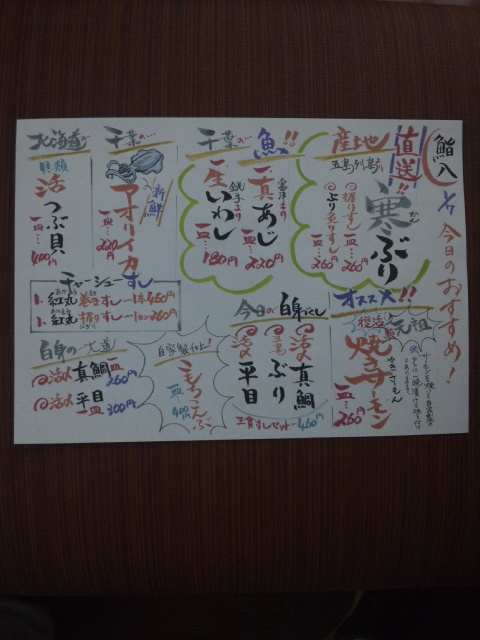 鮨八
今日のおすすめ!
産地
直送!!
五島列島より
寒ぶり
かん
握りすし 一皿…260円
ぶり炙りすし 一皿…260円
千葉の…魚!!
富津より
真あじ
一皿…220円
銚子より
生いわし
一皿…180円
千葉の…
新鮮
アオリイカ
一皿…220円
北海道の…
貝類
活つぶ貝
一皿…400円
チャーシューすし
1. 紅丸巻きすし…1本460円
1. 紅丸握りすし…1カン260円
オススメ!!
復活
元祖
焼きサーモン
やきさーもん
一皿…260円
今日の白身づくし
活〆真鯛
ぶり
活〆平目
三貫すしセット…460円
自家製仕上!
こもちこんぶ
一皿400円
白身の王道
活〆真鯛 一皿260円
活〆平目 一皿300円